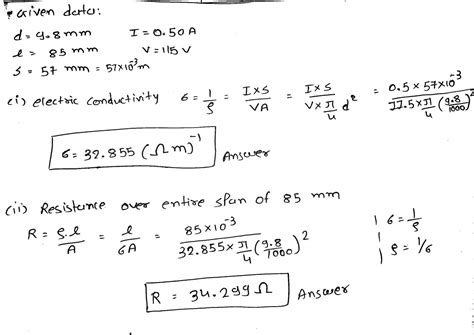 • Given data:
d = 9.8 mm I = 0.50 A
l = 85 mm V = 115 V
s = 57 mm = 57×10⁻³ m
(i) electric conductivity σ = 1/ρ = I×s/VA = I×s/V×π/4 d² = 0.5×57×10⁻³/11.5×π/4 (9.8/1000)²
σ = 32.855 (Ωm)⁻¹ Answer
(ii) Resistance over entire span of 85 mm
R = ρ.l/A = l/σA = 85×10⁻³/32.855×π/4 (9.8/1000)² | σ = 1/ρ
| ρ = 1/σ
R = 34.299 Ω Answer